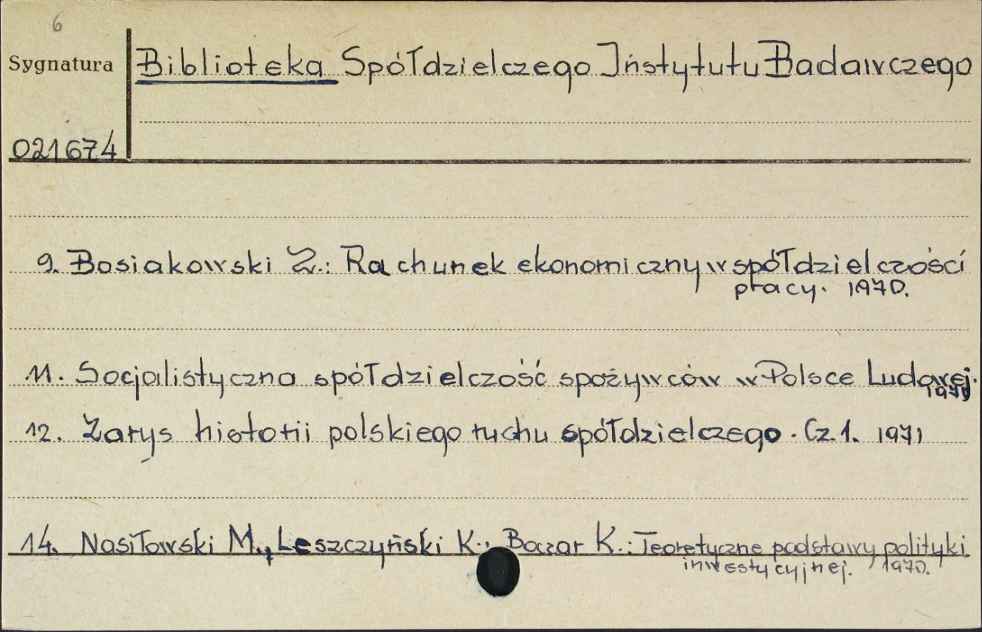 6
Sygnatura
Biblioteka Spółdzielczego Instytutu Badawczego
021674
9. Bosiakowski Z.: Rachunek ekonomiczny w spółdzielczości
pracy. 1970.
11. Socjalistyczna spółdzielczość spożywców w Polsce Ludowej.
12. Zarys historii polskiego ruchu spółdzielczego. Cz.1. 1971
14. Nasiłowski M., Leszczyński K., Boczar K.: Teoretyczne podstawy polityki
inwestycyjnej. 1970.